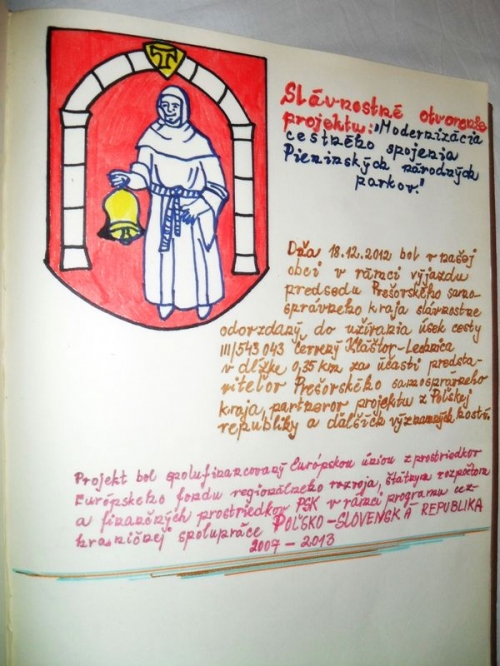 T
Slávnostné otvorenie
projektu: "Modernizácia
cestného spojenia
Pieninských národných
parkov."
Dňa 18.12.2012 bol v našej
obci v rámci výjazdu
predsedu Prešovského samo-
správneho kraja slávnostne
odovzdaný do užívania úsek cesty
III/543 043 Červený Kláštor-Lechnica
v dĺžke 0,35 km za účasti predsta-
viteľov Prešovského samosprávneho
kraja, partnerov projektu z Poľskej
republiky a ďalších významných hostí.
Projekt bol spolufinancovaný Európskou úniou z prostriedkov
Európskeho fondu regionálneho rozvoja, štátnym rozpočtom
a finančných prostriedkov PSK v rámci programu cez-
hraničnej spolupráce POĽSKO-SLOVENSKÁ REPUBLIKA
2007 - 2013